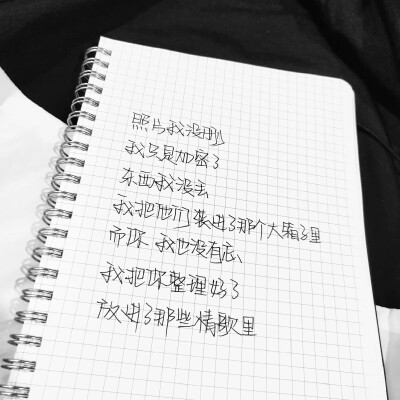 照片我没删
我只是加密了
东西我没丢
我把他们装进了那个大箱子里
而你 我也没有忘
我把你整理好了
放进了那些情歌里